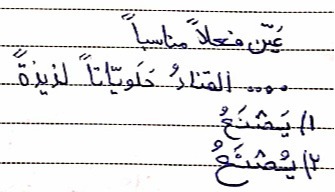 عَيّن فعلاً مناسباً
.... القنادُ حَلَويّاتاً لذيذةً
۱) يَصْنَعُ
۲) يُصْنَعُ